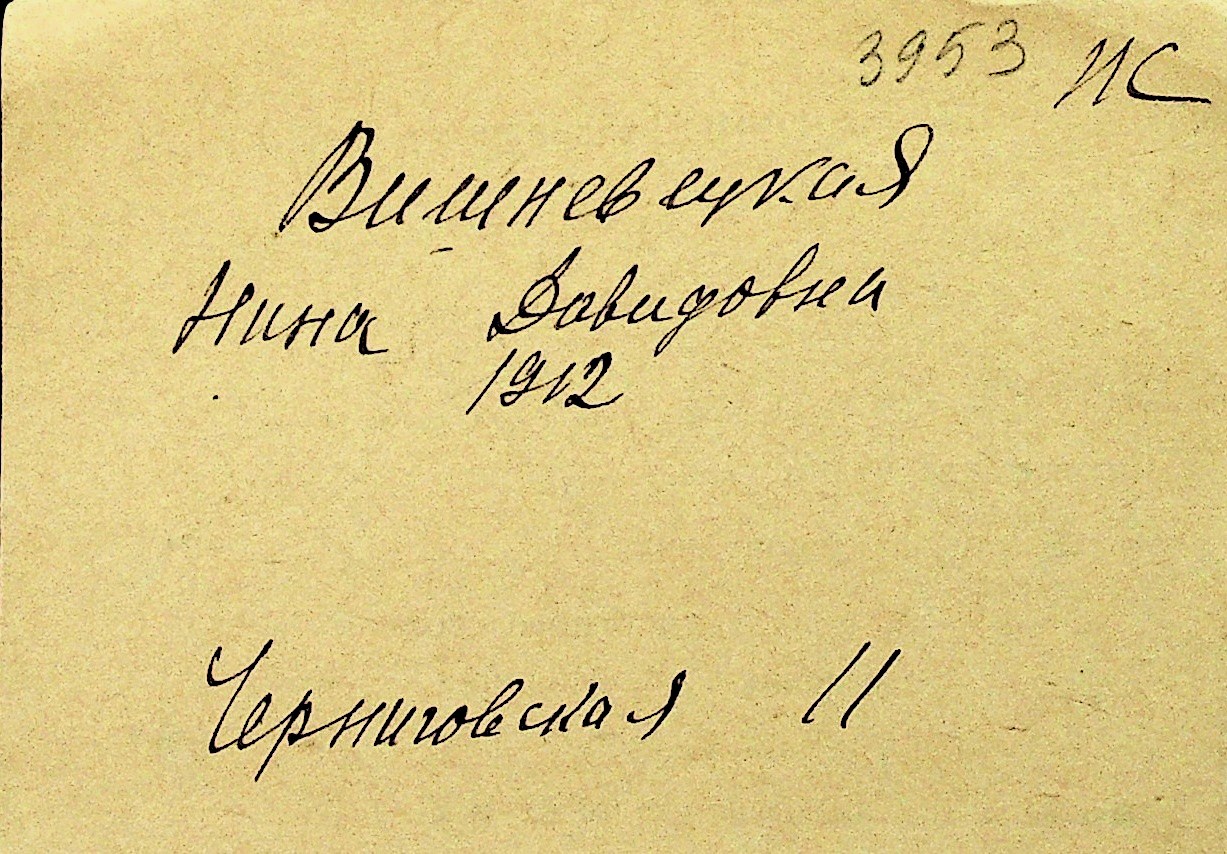 3953 ИС
Вишневецкая
Нина Давидовна
1912
Черниговская 11